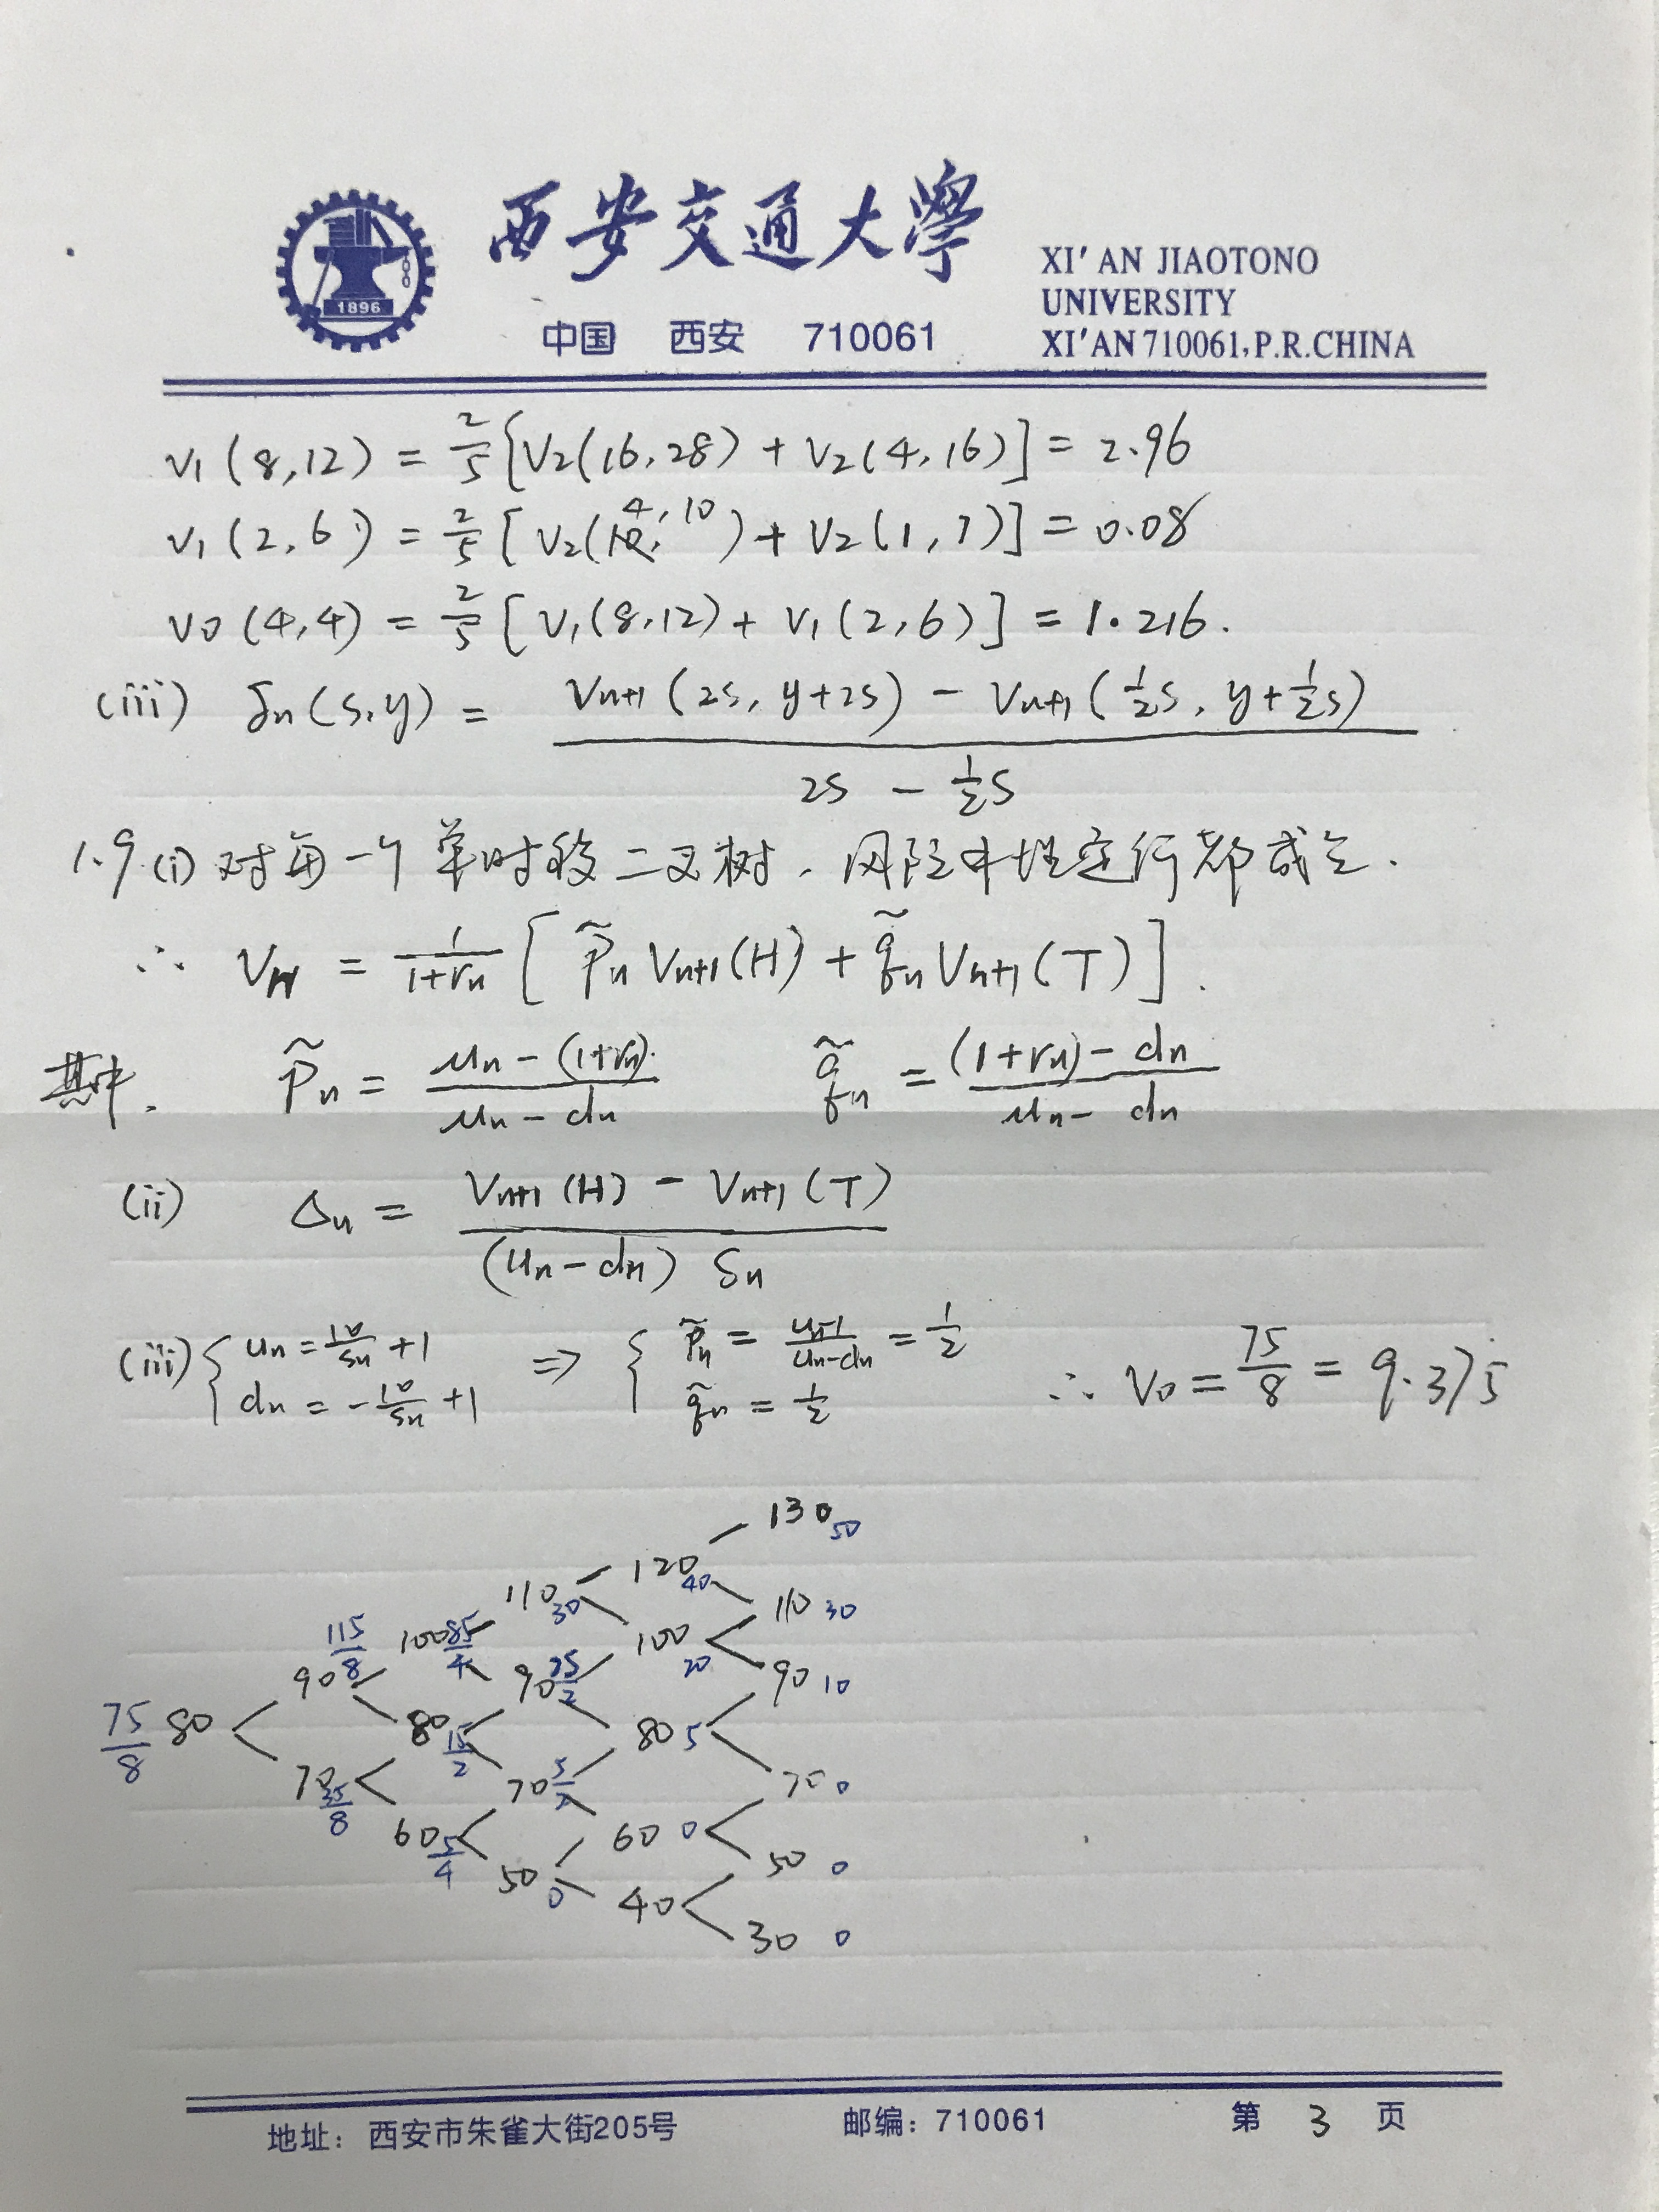 1896
西安交通大學
中国 西安 710061
XI' AN JIAOTONO
UNIVERSITY
XI'AN 710061, P.R.CHINA
V₁(8,12) = 2/5 [V₂(16,28) + V₂(4,16)] = 2.96
V₁(2,6) = 2/5 [V₂(4,10) + V₂(1,7)] = 0.08
V₀(4,4) = 2/5 [V₁(8,12) + V₁(2,6)] = 1.216.
(iii) δn(s,y) = (Vn+1(2s, y+2s) − Vn+1(½s, y+½s)) / (2s − ½s)
1.9 (i) 对每一个单时段二叉树,风险中性定价都成立.
∴ Vn = 1/(1+rn) [p̃n Vn+1(H) + q̃n Vn+1(T)].
其中, p̃n = (un − (1+rn)) / (un − dn) q̃n = ((1+rn) − dn) / (un − dn)
(ii) Δn = (Vn+1(H) − Vn+1(T)) / ((un − dn) Sn)
(iii) { un = 10/Sn + 1 ⇒ { p̃n = (un−1)/(un−dn) = 1/2 ∴ V₀ = 75/8 = 9.375
dn = −10/Sn + 1 q̃n = 1/2
130 50
120 40
110 30
110 30
115/8 100 85/4
100 20
90 90 25/2
90 10
75/8 80
80 15/2
80 5
70 35/8
70 5/2
70 0
60 5/4
60 0
50 0
50 0
40
30 0
地址:西安市朱雀大街205号 邮编:710061 第 3 页